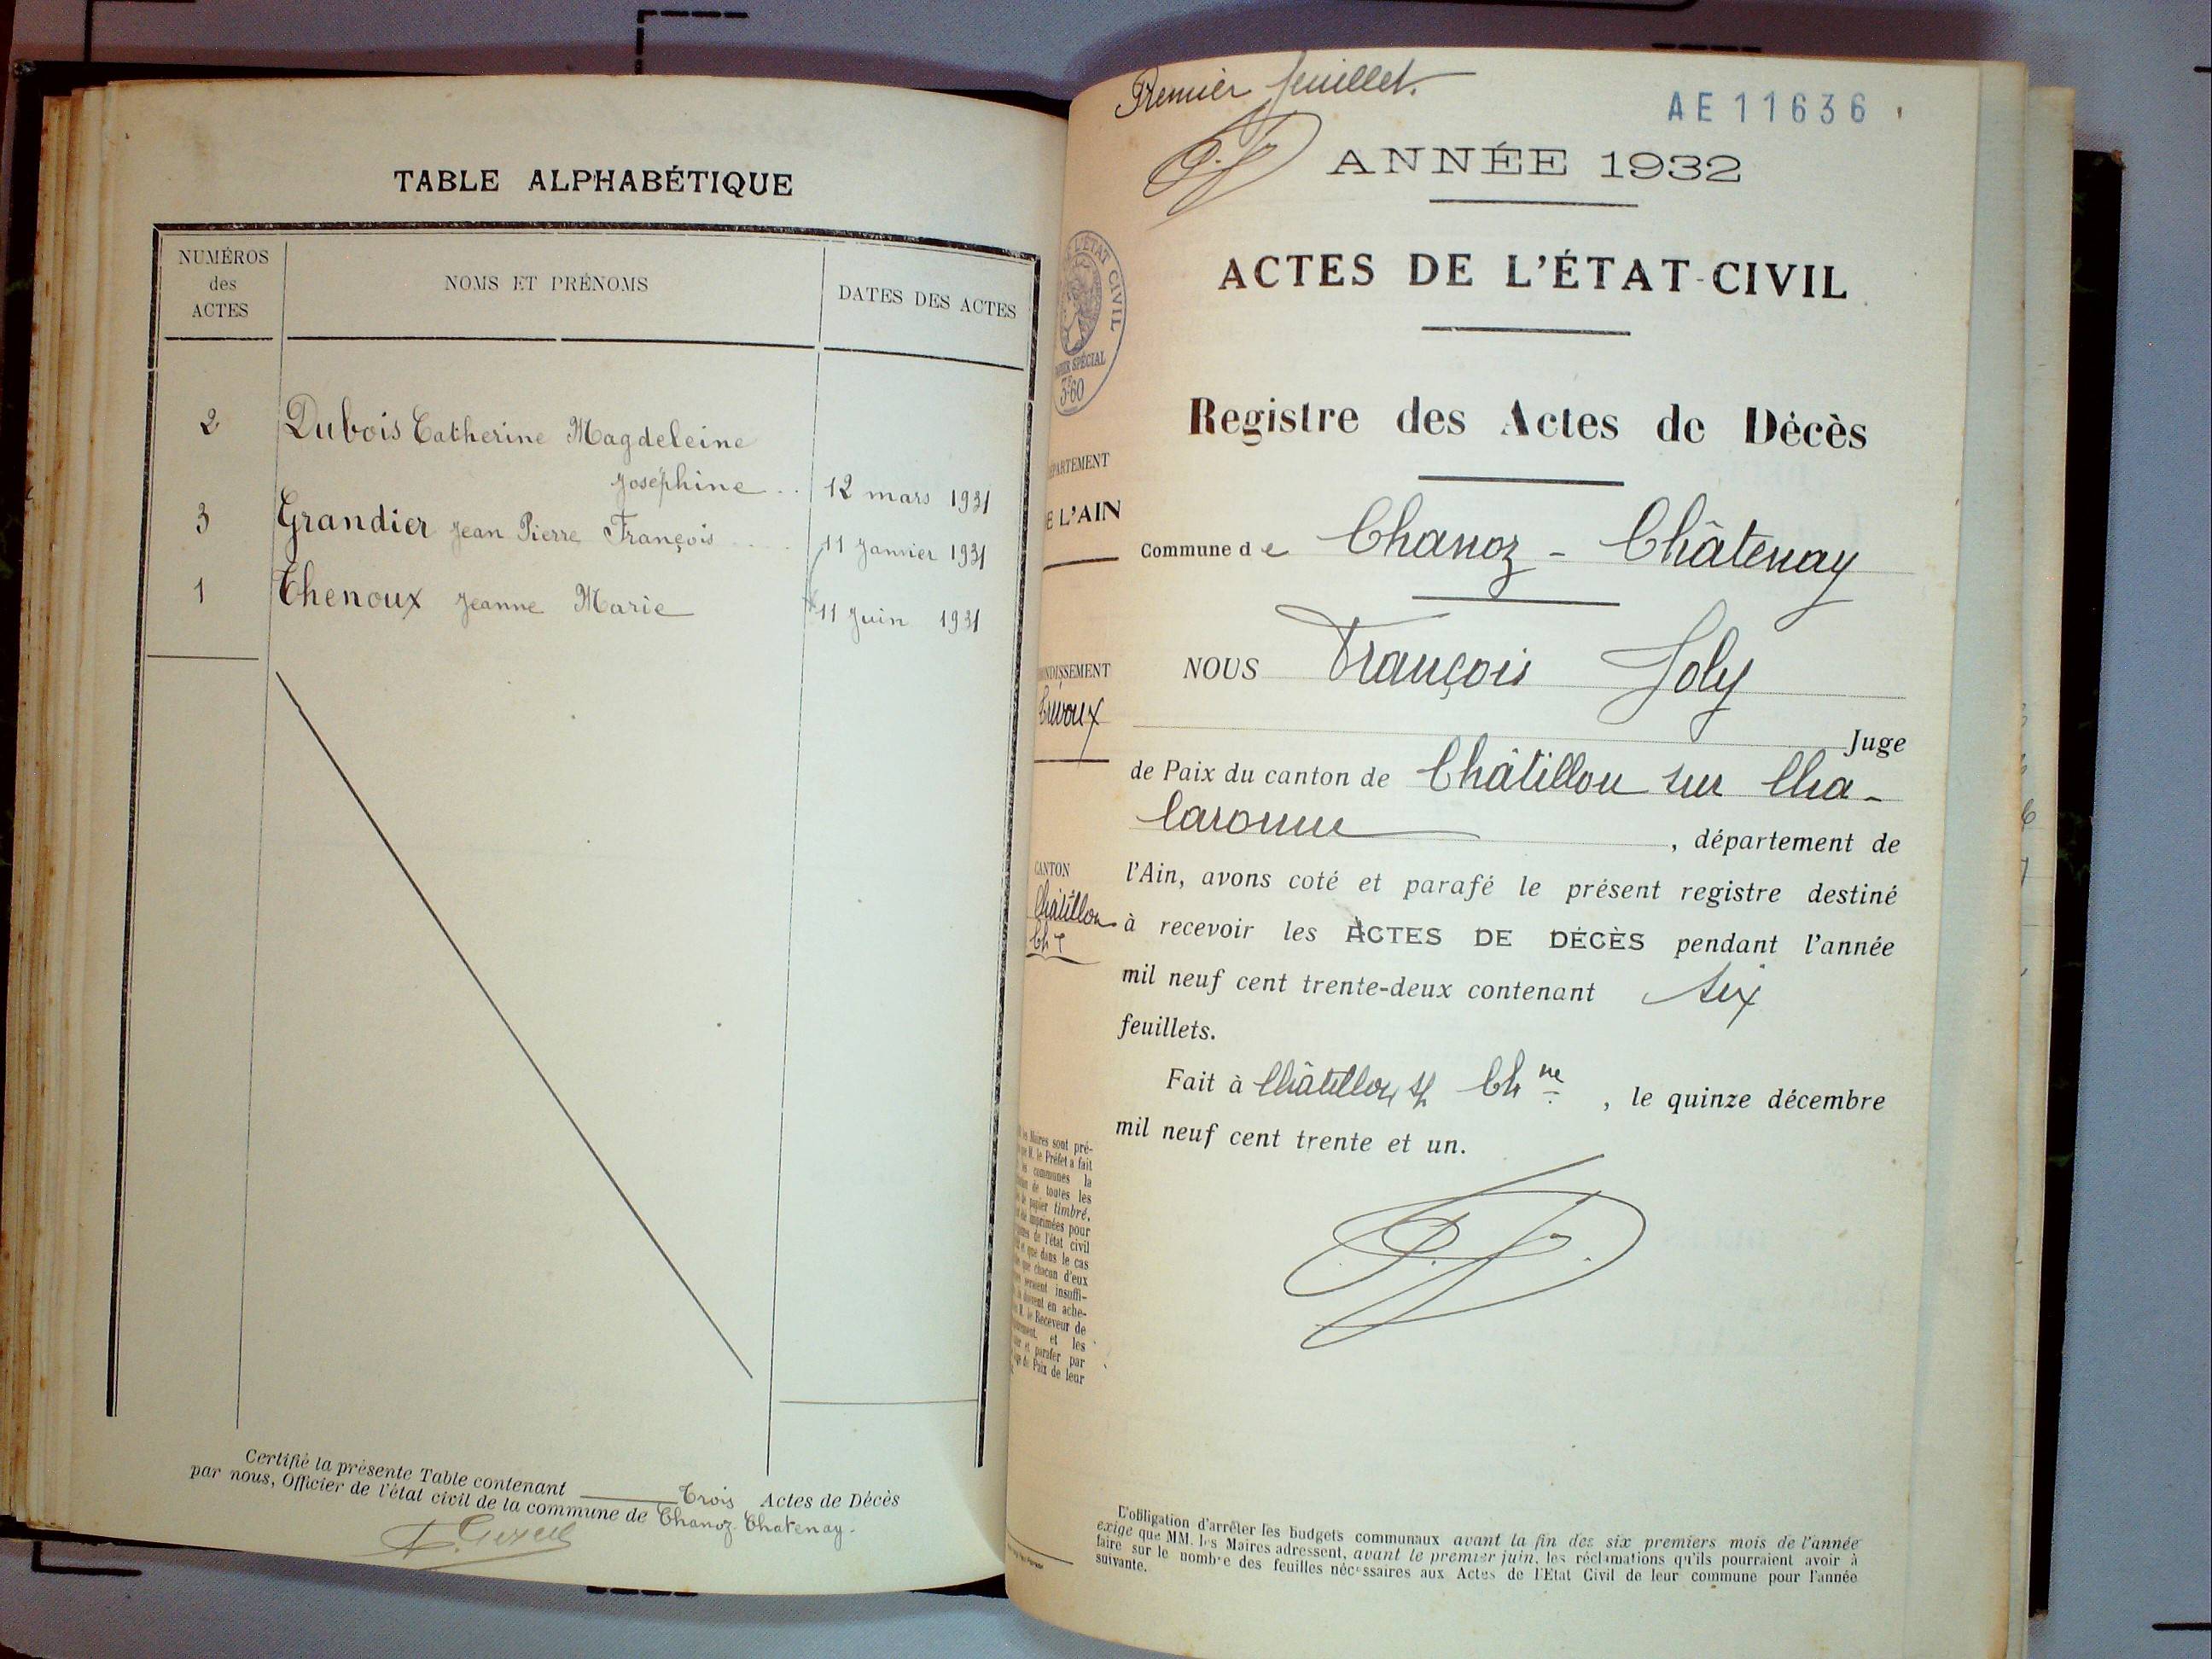 TABLE ALPHABÉTIQUE
NUMÉROS
des
ACTES
NOMS ET PRÉNOMS
DATES DES ACTES
2 Dubois Catherine Magdeleine
Joséphine .. 12 mars 1931
3 Grandier Jean Pierre François .. 11 Janvier 1931
1 Thenoux Jeanne Marie 11 Juin 1931
Certifié la présente Table contenant Trois Actes de Décès
par nous, Officier de l'état civil de la commune de Chanoz-Chatenay.
Premier feuillet.
AE11636
ANNÉE 1932
ACTES DE L'ÉTAT-CIVIL
L'ÉTAT CIVIL
SPÉCIAL
3f60
Registre des Actes de Décès
L'AIN
Commune de Chanoz - Châtenay
NOUS François Joly
Juge
de Paix du canton de Châtillon sur Cha-
laronne, département de
CANTON
Châtillon
l'Ain, avons coté et parafé le présent registre destiné
à recevoir les ACTES DE DÉCÈS pendant l'année
mil neuf cent trente-deux contenant six
feuillets.
Fait à Châtillon s/ Ch ne, le quinze décembre
mil neuf cent trente et un.
Maires sont pré-
M. le Préfet a fait
communes la
de toutes les
papier timbré.
imprimées pour
de l'état civil
que dans le cas
que chacun d'eux
seraient insuffi-
en ache-
le Receveur de
et les
et parafer par
de Paix de leur
L'obligation d'arrêter les budgets communaux avant la fin des six premiers mois de l'année
exige que MM. les Maires adressent, avant le premier juin, les réclamations qu'ils pourraient avoir à
faire sur le nombre des feuilles nécessaires aux Actes de l'Etat Civil de leur commune pour l'année
suivante.